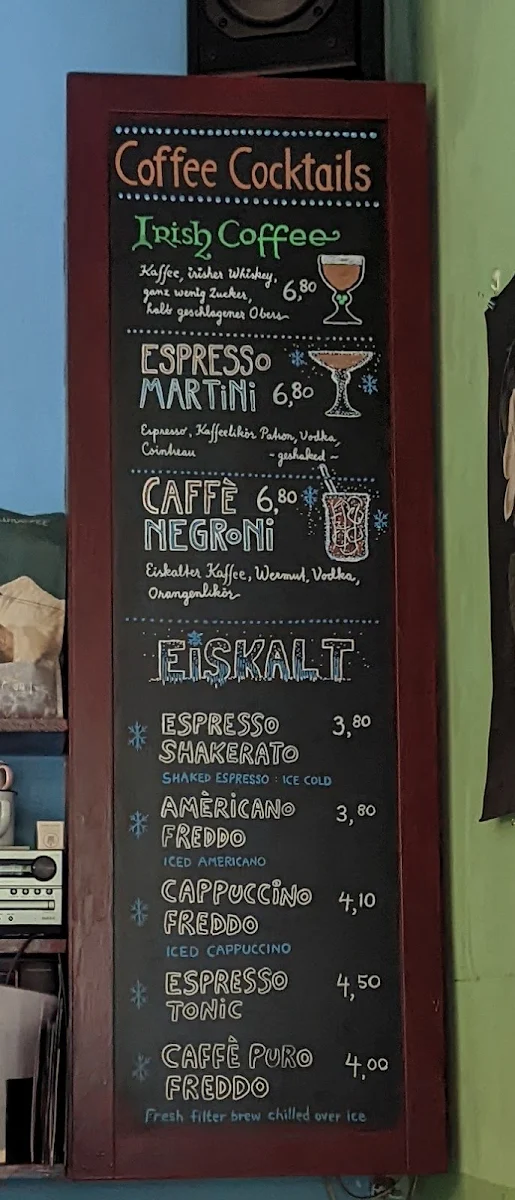 Coffee Cocktails
Irish Coffee
Kaffee, irisher Whiskey,
ganz wenig Zucker,
halb geschlagener Obers
6,80
ESPRESSO
MARTINI 6,80
Espresso, Kaffeelikör Patron, Vodka,
Cointreau ~ geshaked ~
CAFFÈ 6,80
NEGRONI
Eiskalter Kaffee, Wermut, Vodka,
Orangenlikör
EISKALT
ESPRESSO 3,80
SHAKERATO
SHAKED ESPRESSO : ICE COLD
AMÈRICANO 3,80
FREDDO
ICED AMERICANO
CAPPUCCINO 4,10
FREDDO
ICED CAPPUCCINO
ESPRESSO 4,50
TONIC
CAFFÈ PURO 4,00
FREDDO
Fresh filter brew chilled over ice